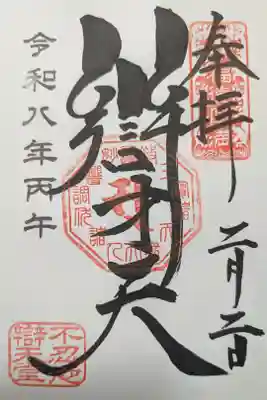 奉拝
二月二日
辯才天
令和八年丙午
不忍池
辯天堂